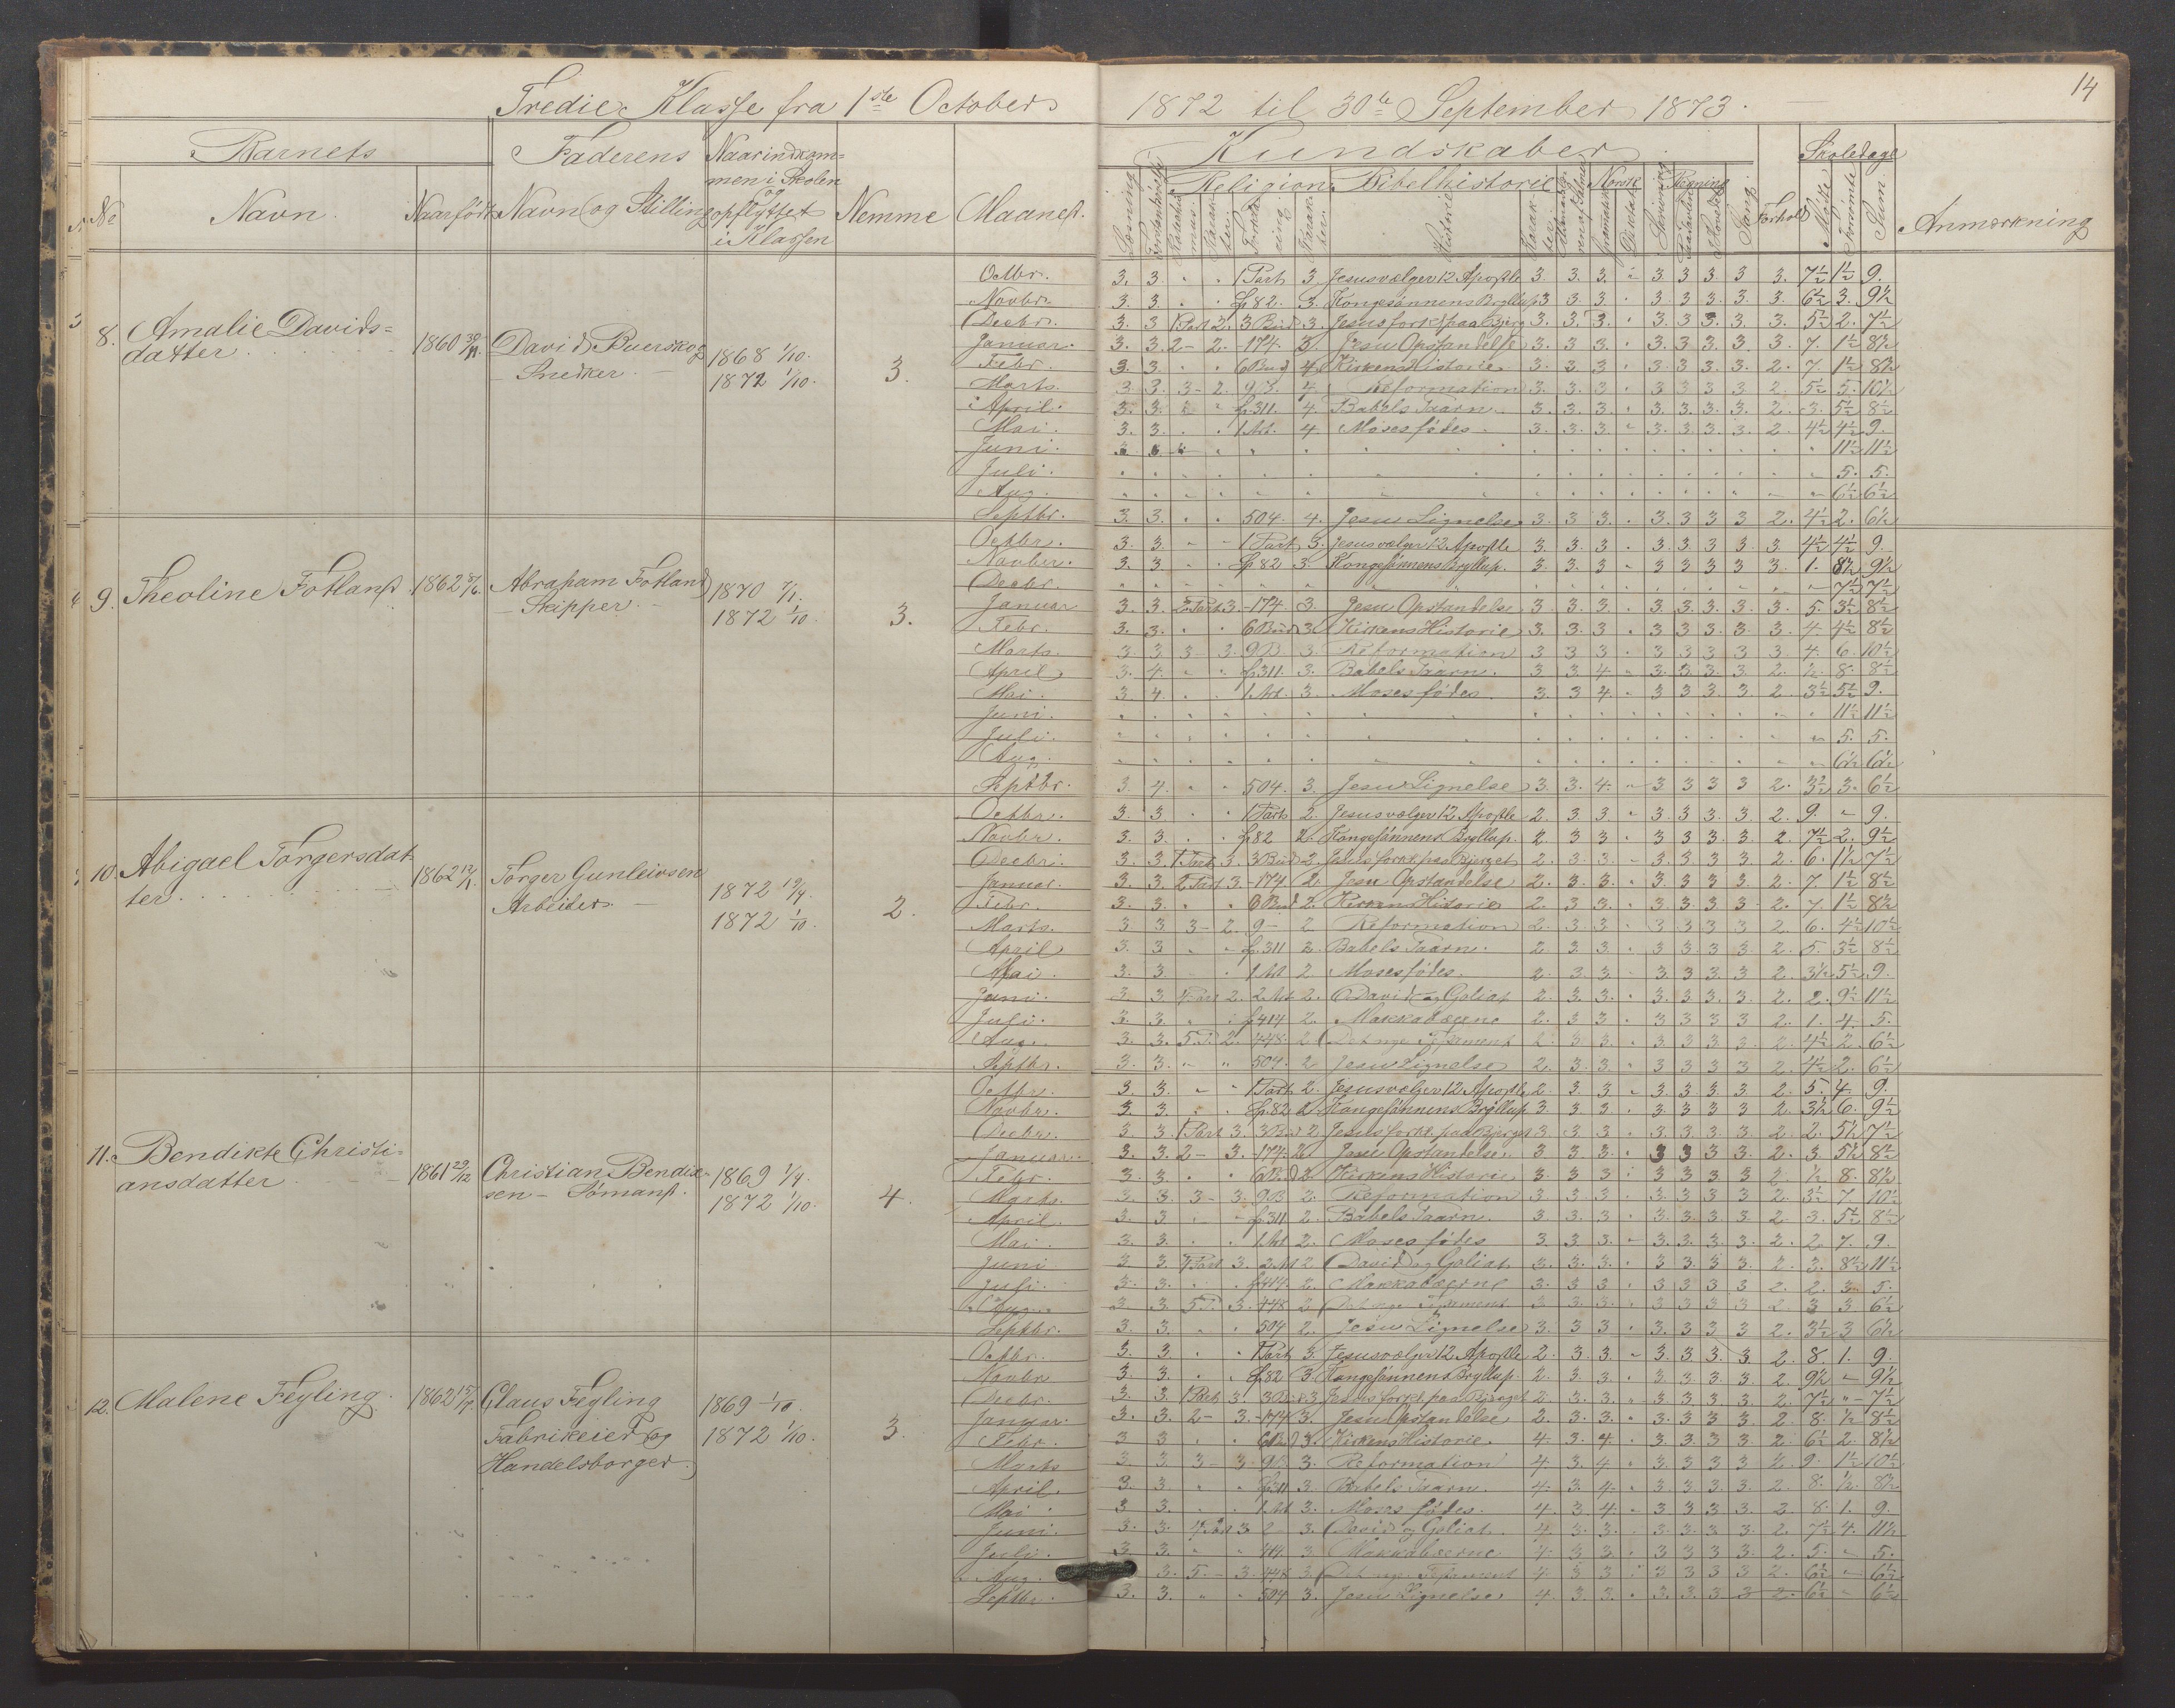 14
Tredie Klasse fra 1ste October 1872 til 30te September 1873.
Barnets Faderens Naar indkommen i Skolen og opflyttet i Klassen Nemme Maaned. Kundskaber Forhold Skoledage Anmærkning
No Navn. Naar født Navn og Stilling Religion Bibelhistorie Norsk Regning Sang Mødte Forsømte Sum.
8. Amalie Davids=
datter 1860 30/11. David Buerskog
- Snedker - 1868 1/10.
1872 1/10. 3.
Octbr. 3. 3. " " 1 Part 3. Jesus vælger 12 Apostle 3 3. 3. " 3. 3 3. 3 3. 7½ 1½ 9.
Novbr. 3 3. " " fr 82. 3. Kongesønnens Bryllup 3 3 3 " 3 3 3. 3. 3. 6½ 3. 9½
Decbr. 3. 3 1 Part 2. 3 Bud 3. Jesus forkl. paa Bjerg 3. 3. 3. " 3. 3 3. 3. 3. 5½ 2. 7½
Januar. 3. 3. 2 - 2. - 174. 3. Jesu Opstandelse 3. 3. 3. " 3. 3. 3. 3. 3. 7. 1½ 8½
Febr. 3. 3. " " 6 Bud 4. Kirkens Historie 3. 3. 3 " 3. 3 3. 3. 2. 7. 1½ 8½
Marts. 3. 3. 3 - 2. 9 B. 4. Reformation 3. 3. 3. " 3 3 3 3. 2. 5½ 5. 10½
April. 3. 3. " " fr. 311. 4. Babels Taarn. 3. 3. 3. " 3. 3. 3. 3. 2. 3. 5½ 8½
Mai. 3. 3. " " 1 Art. 4 Moses fødes. 3. 3. 3. " 3. 3 3. 3. 2. 4½ 4½ 9.
Juni. 11½ 11½
Juli. 5. 5.
Aug. 6½ 6½
Septbr. 3. 3. " " 504. 4. Jesu Lignelse 3. 3 3. " 3. 3 3 3 2. 4½ 2. 6½
9. Theoline Fotland. 1862 8/6. Abraham Fotland
- Skipper. - 1870 7/1.
1872 1/10. 3.
Octbr. 3. 3. " " 1 Part 3. Jesus vælger 12 Apostle 3. 3. 3. " 3. 3. 3 3. 3. 4½ 4½ 9.
Novbr. 3 3. " " fr 82 3. Kongesønnens Bryllup. 3. 3. 3 " 3 3 3 3 3. 1. 8½ 9½
Decbr. 7½ 7½
Januar 3. 3. 2 Part 3. - 174. 3. Jesu Opstandelse 3. 3. 3. " 3. 3. 3. 3. 3. 5. 3½ 8½
Febr. 3. 3. " " 6 Bud 3. Kirkens Historie 3. 3. 3 " 3 3 3. 3. 3. 4. 4½ 8½
Marts. 3. 3 3 - 3. 9 B 3. Reformation 3 3 3 " 3 3 3 3 3. 4. 6. 10½
April 3. 4. " " fr. 311. 3. Babels Taarn. 3 3. 4 " 3. 3. 3 3 2. ½. 8. 8½
Mai. 3 4. " " 1 Art. 3. Moses fødes. 3. 3 4. " 3 3 3 3. 2 3½ 5½ 9.
Juni. 11½ 11½
Juli. 5. 5.
Aug. 6½ 6½
Septbr. 3. 4. " " 504. 3. Jesu Lignelse 3. 3. 4. " 3 3 3 3 2. 3½ 3. 6½
10. Abigael Torgersdat-
ter 1862 12/1. Torger Gunleivsen
Arbeider. - 1872 19/4.
1872 1/10. 2.
Octbr. 3. 3. " " 1 Part 2. Jesus vælger 12 Apostle 2. 3. 3. " 3. 3. 3. 3 2. 9. " 9.
Novbr. 3. 3. " " fr 82 2. Kongesønnens Bryllup. 2. 3 3 " 3 3 3. 3. 2. 7½ 2. 9½
Decbr. 3. 3. 1 Part 3. 3 Bud 2. Jesus forkl. paa Bjerget 2. 3. 3. " 3. 3. 3. 3. 2. 6. 1½ 7½
Januar. 3. 3. 2 Part 3. - 174 2. Jesu Opstandelse 2. 3. 3. " 3. 3 3 3. 2. 7. 1½ 8½
Febr. 3. 3. " " 6 Bud 2. Kirkens Historie 2. 3. 3. " 3. 3. 3. 3 2. 7. 1½ 8½
Marts. 3 3 3 - 2. 9 - 2 Reformation 2. 3. 3 " 3 3. 3 3 2. 6. 4½ 10½
April 3. 3 " " fr. 311 2. Babels Taarn. 2 3. 3. " 3 3. 3. 3. 2. 5. 3½ 8½
Mai. 3. 3 " " 1 Art 2. Moses fødes. 2. 3. 3. " 3. 3. 3. 3 2. 3½ 5½ 9.
Juni. 3. 3. 4 Part 2. 2 Art 2. David og Goliat 2. 3. 3. " 3. 3 3. 3. 2. 2. 9½ 11½
Juli. 3. 3. " " fr 414 2. Makkabæerne 2. 3 3 " 3 3 3 3 2. 1. 4. 5.
Aug. 3. 3. 5 P. 2. 448. 2 Det nye Testament 2. 3. 3. " 3. 3 3 3. 2. 4½ 2. 6½
Septbr. 3. 3. " " 504. 2 Jesu Lignelse 2. 3. 3. " 3 3 3 3 2 4½ 2. 6½
11. Bendikte Christi=
ansdatter 1861 29/12 Christian Bendix-
sen - Sømand. 1869 1/4.
1872 1/10. 4.
Octbr. 3. 3. " " 1 Part 2. Jesus vælger 12 Apostle 2. 3. 3 " 3. 3. 3 3. 2. 5 4. 9.
Novbr. 3. 3. " " fr. 82 2. Kongesønnens Bryllup 3. 3. 3. " 3. 3 3 3 2. 3½ 6. 9½
Decbr. 3. 3. 1 Part 3. 3 Bud 2. Jesus forkl. paa Bjerget 3 3. 3 " 3. 3. 3. 3. 2. 2. 5½ 7½
Januar. 3. 3. 2 - 3. - 174. 2. Jesu Opstandelse. 3 3. 3. " 3 3 3 3. 2. 3. 5½ 8½
Febr. 3. 3. " " 6 B. 2. Kirkens Historie 3. 3 3 " 3 3 3. 3 2. ½ 8. 8½
Marts. 3. 3. 3 - 3. 9 B 2. Reformation 3 3 3 " 3 3 3 3 2. 3½ 7. 10½
April. 3. 3 " " fr. 311 2. Babels Taarn. 3 3. 3 " 3. 3. 3. 3. 2. 3. 5½ 8½
Mai. 3. 3. " " 1 Art 2. Moses fødes 3. 3. 3. " 3. 3. 3. 3. 2. 2. 7. 9.
Juni 3 3. 4 Part 3. 2 Art 2. David og Goliat. 3. 3. 3. " 3. 3. 3. 3. 2. 3. 8½ 11½
Juli. 3. 3. " " fr 414 2. Makkabæerne 3. 3. 3 " 3 3 3 3 2. 2. 3 5.
Aug. 3 3. 5 P. 3. 448 2 Det nye Testament 3 3. 3. " 3 3 3 3 2. 3 3 6½
Septbr. 3. 3. " " 504 2. Jesu Lignelse 3. 3 3 " 3. 3 3 3 2. 3½ 3 6½
12. Malene Feyling. 1862 Claus Feyling
Fabrikeier og
Handelsborger. 1869 1/10.
1872 1/10. 3.
Octbr. 3. 3. " " 1 Part 3. Jesus vælger 12 Apostle 2. 3. 3. " 3. 3. 3. 3 2. 8. 1. 9.
Novbr. 3 3. " " fr 82 3. Kongesønnens Bryllup. 2. 3. 3 " 3. 3. 3. 3. 2 9½ " 9½
Decbr. 3. 3. 1 Part 3. 3 Bud 3. Jesus forkl. paa Bjerget 2. 3. 3. " 3. 3. 3. 3. 2. 7½ " 7½
Januar. 3. 3. 2 - 3. - 174 3. Jesu Opstandelse 2. 3. 3. " 3. 3. 3 3. 2. 8. ½ 8½
Febr. 3 3 " " 6 B. 3. Kirkens Historie. 4. 3. 4. " 3. 3. 3 3. 2. 6½ 2. 8½
Marts 3. 3. 3 - 3. 9 B 3. Reformation 4 3. 4 " 3. 3. 3. 3. 2. 9. 1½ 10½
April. 3. 3. " " fr. 311 3. Babels Taarn. 4. 3. 4. " 3. 3. 3. 3. 2. 8. ½. 8½
Mai 3 3. " " 1 Art 3. Moses fødes. 4. 3 4. " 3. 3 3 3. 2. 8. 1. 9.
Juni. 3. 3. 4 Part 3 2 3. David og Goliat. 4. 3. 3. " 3. 3. 3. 3. 2. 7½ 4. 11½
Juli. 3 3. " " 414 3 Makkabæerne 4. 3 3. " 3 3 3 3. 2. 5. " 5.
Aug. 3. 5. - 3. 448 3 Det nye Testament 4. 3 3 " 3 3 3 3 2. 6½ " 6½
Septbr. 3. 3. " " 504 3. Jesu Lignelse 4. 3. 3. " 3. 3. 3 3 2. 6½ " 6½